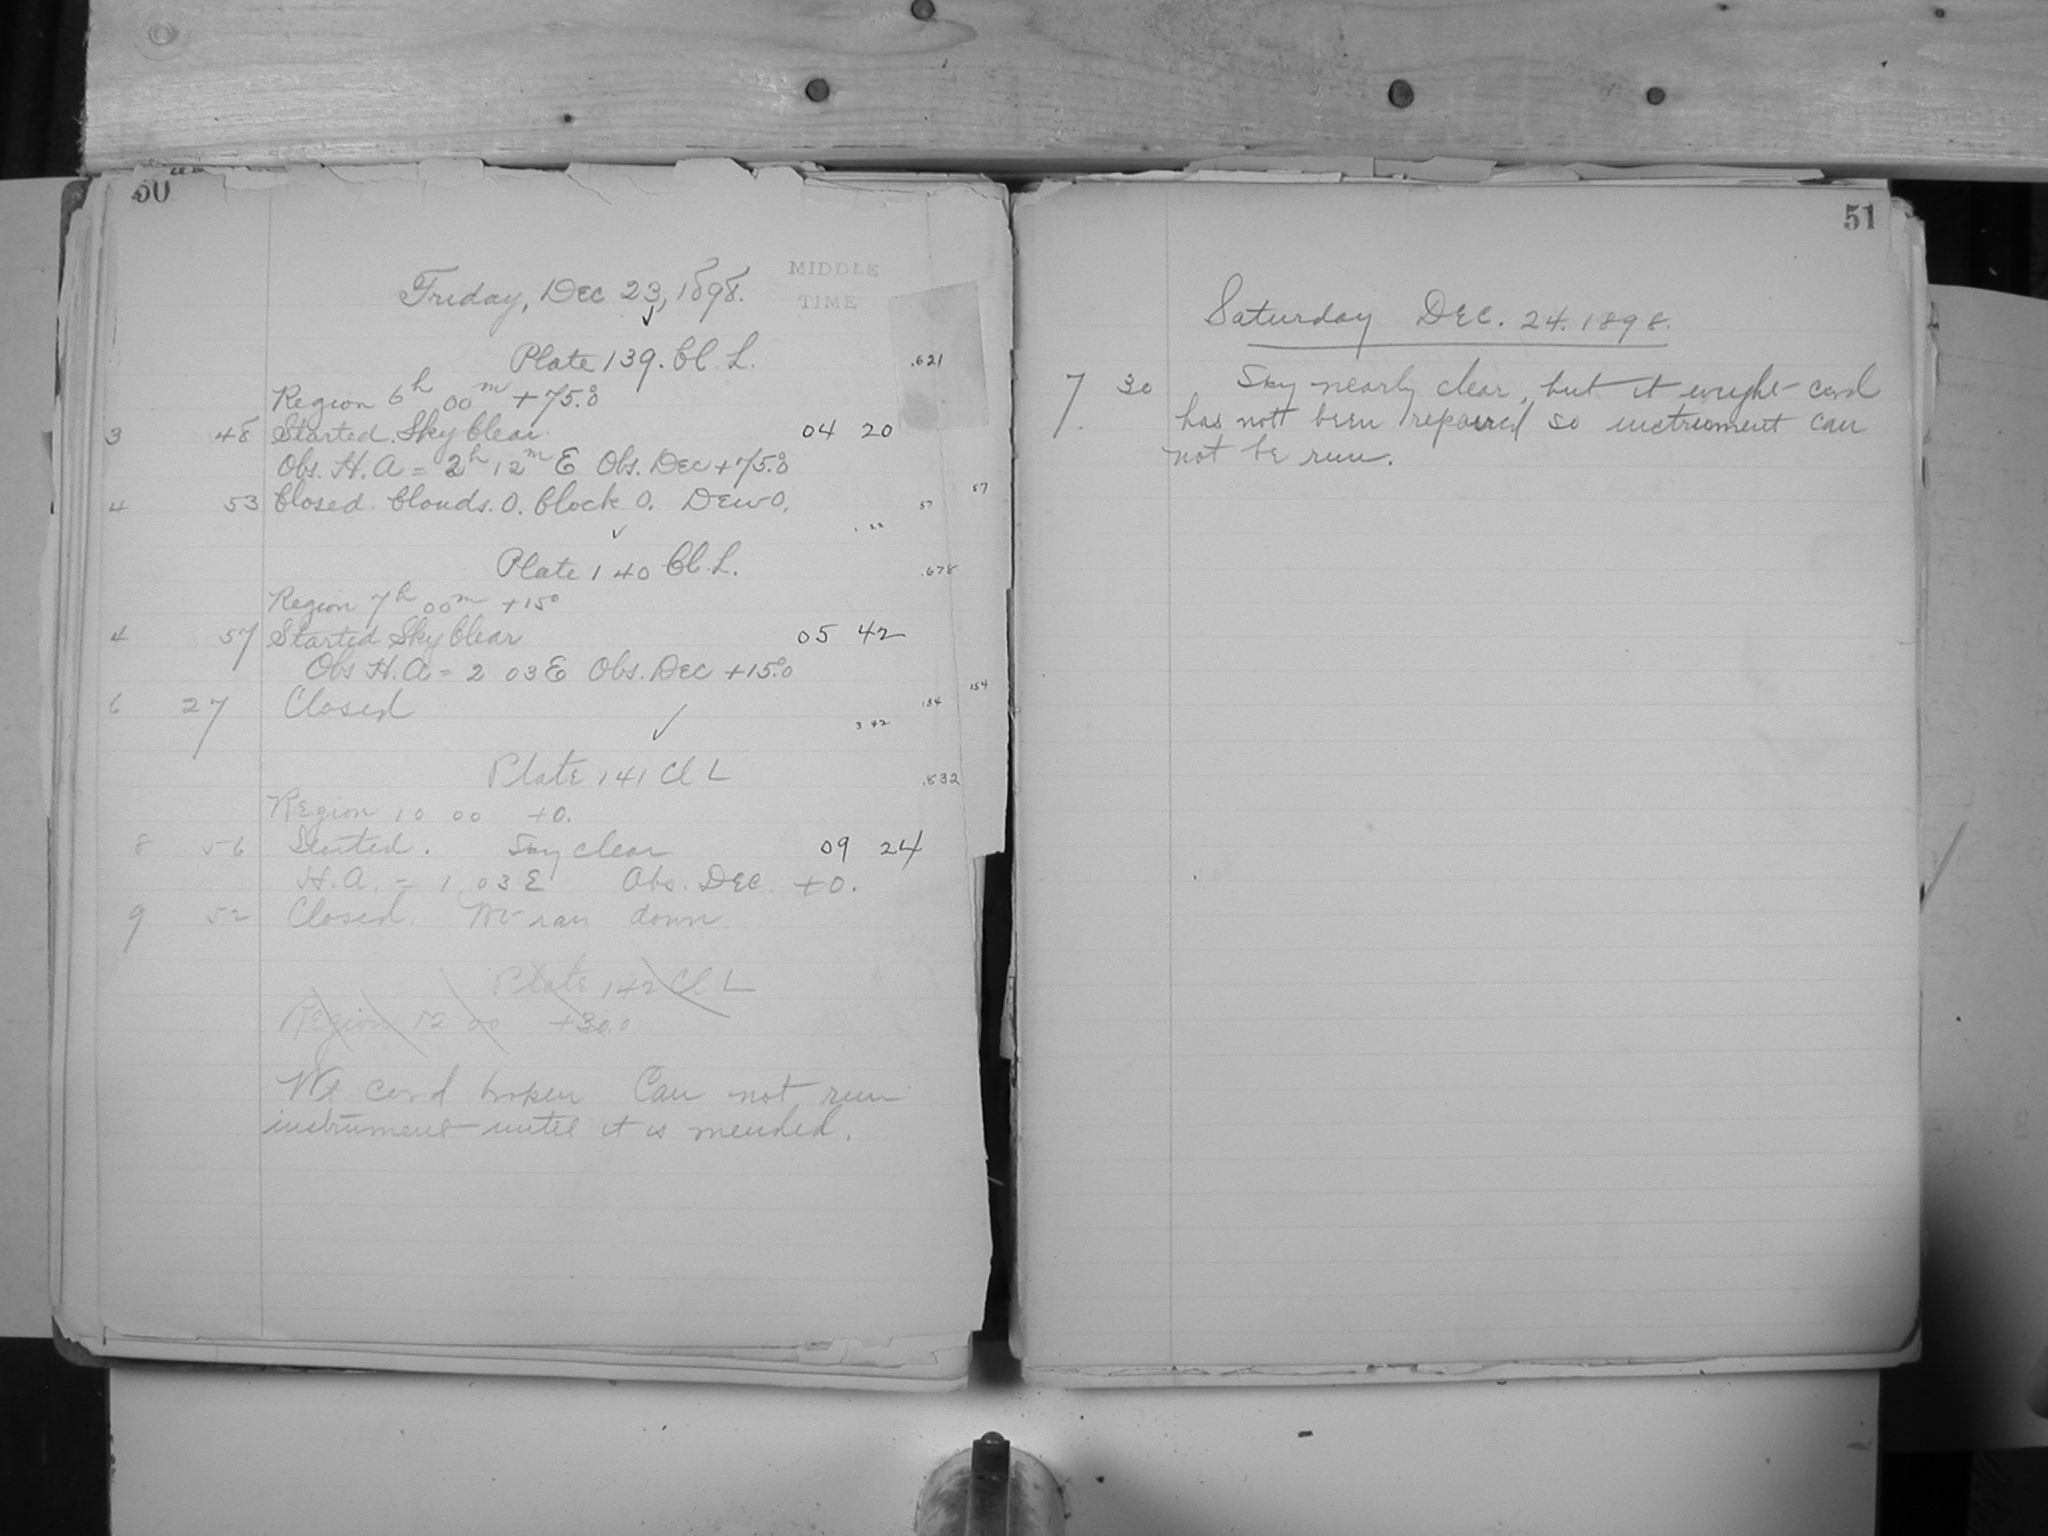 50
MIDDLE
TIME
Friday, Dec 23, 1898.
Plate 139. Cl. L.
.621
Region 6h 00m +75.°0
3 48 Started. Sky Clear. 04 20
Obs. H. A = 2h 12m E Obs. Dec +75.°0
4 53 Closed. Clouds. 0. Clock. 0. Dew 0.
57
57
1 22
Plate 140 Cl. L.
.678
Region 7h 00m +15°
4 57 Started Sky Clear. 05 42
Obs H. A = 2 03 E Obs. Dec +15.°0
6 27 Closed
154
154
3 42
Plate 141 Cl L
.832
Region 10 00 +0.
8 56 Started. Sky clear 09 24
H. A. = 1 03 E Obs. Dec. +0.
9 52 Closed. Wt ran down
Plate 142 Cl L
Region 12 00 +30.0
Wt cord broken Can not run
instrument until it is mended.
51
Saturday Dec. 24. 1898.
7 30 Sky nearly clear, but it weight cord
has nott been repaired so instrument can
not be run.